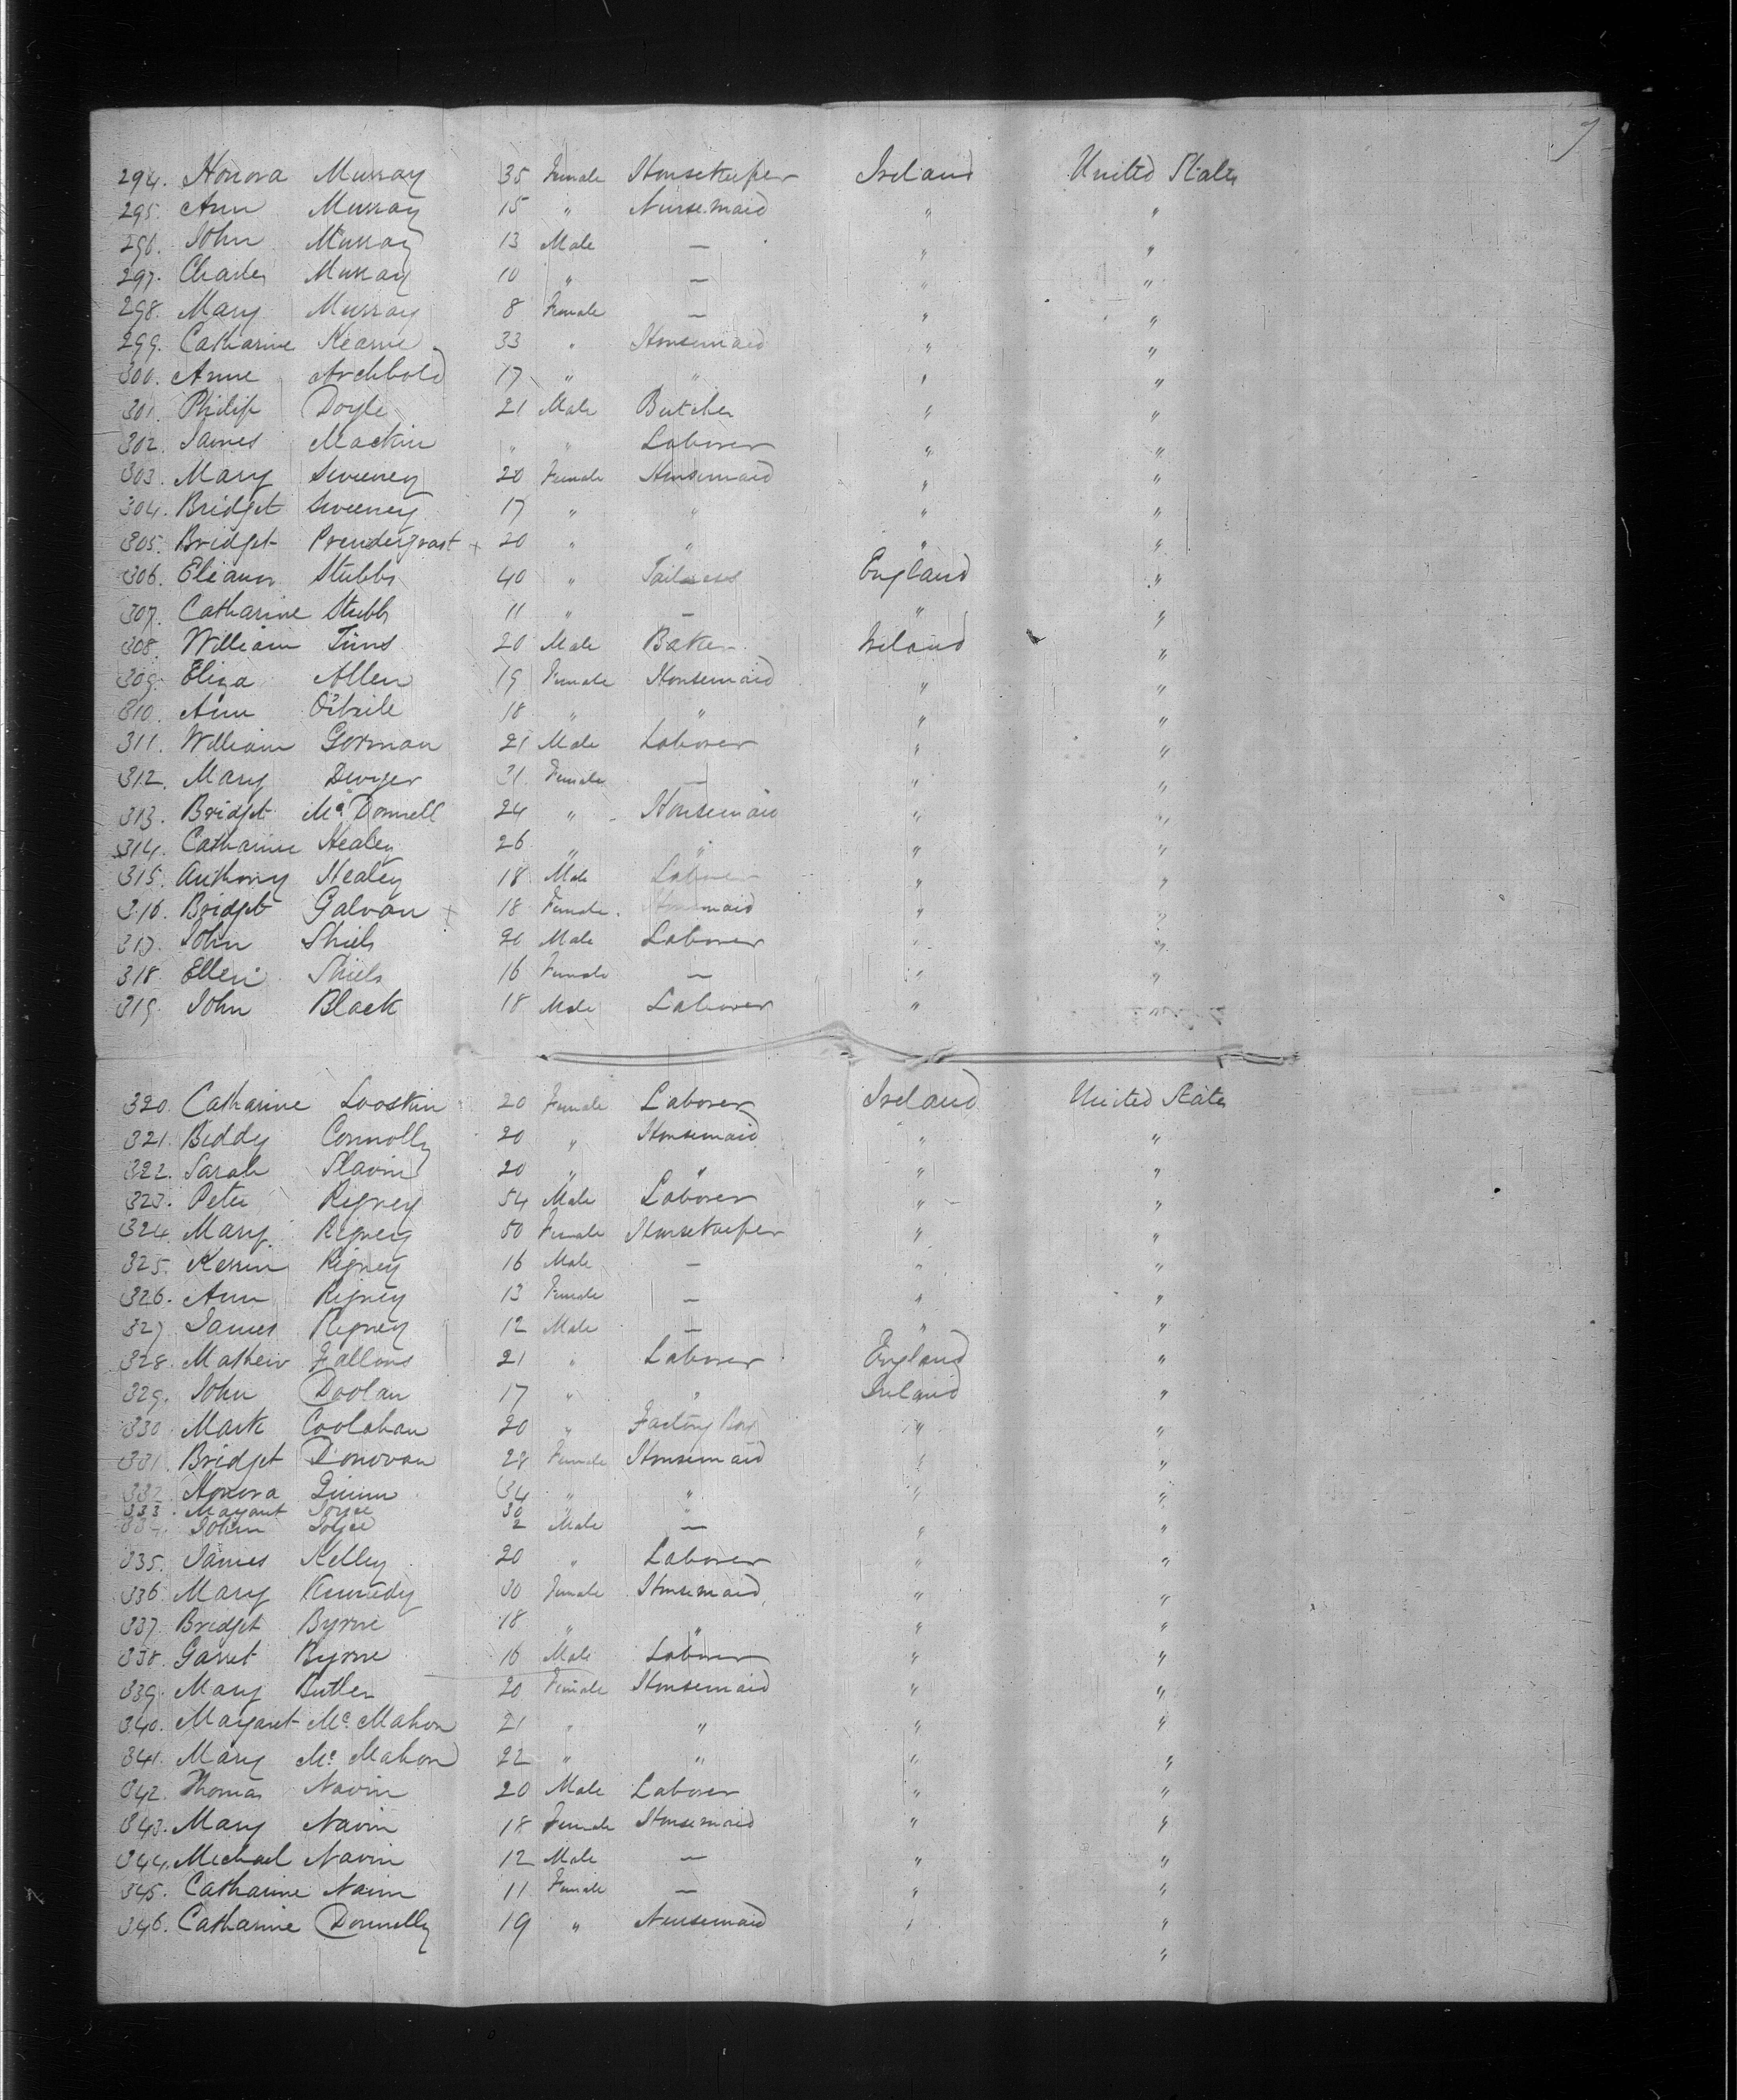 7
294. Honora Murray 35 Female Housekeeper Ireland United States
295. Ann Murray 15 " Nursemaid " "
296. John Murray 13 Male — " "
297. Charles Murray 10 " — " "
298. Mary Murray 8 Female — " "
299. Catharine Kearne 33 " Housemaid " "
300. Anne Archbold 17 " " " "
301. Philip Doyle 21 Male Butcher " "
302. James Mackin " " Laborer " "
303. Mary Sweeney 20 Female Housemaid " "
304. Bridget Sweeney 17 " " " "
305. Bridget Prendergrast + 20 " " " "
306. Eleanor Stubbs 40 " Tailoress England "
307. Catharine Stubbs 11 " — " "
308. William Tims 20 Male Baker Ireland "
309. Eliza Allen 19 Female Housemaid " "
310. Ann 18 " " " "
311. William Gorman 21 Male Laborer " "
312. Mary Dwyer 31 Female — " "
313. Bridget McDonnell 24 " Housemaid " "
314. Catharine Healey 26 " " " "
315. Anthony Healey 18 Male Laborer " "
316. Bridget Galvan + 18 Female Housemaid " "
317. John Shiels 20 Male Laborer " "
318. Ellen Shiels 16 Female — " "
319. John Black 18 Male Laborer " "
320. Catharine Looskin 20 Female Laborer Ireland United States
321. Biddy Connolly 20 " Housemaid " "
322. Sarah Slavin 20 " " " "
323. Peter Rigney 54 Male Laborer " "
324. Mary Rigney 50 Female Housekeeper " "
325. Kerrin Rigney 16 Male — " "
326. Ann Rigney 13 Female — " "
327. James Rigney 12 Male — " "
328. Mathew Fallons 21 " Laborer England "
329. John Doolan 17 " " Ireland "
330. Mark Coolahan 20 " Factory Boy " "
331. Bridget Donovan 28 Female Housemaid " "
332. Honora Quinn 34 " " " "
333. Margaret Joyce 30 " "
334. John Joyce 2 Male — " "
335. James Kelley 20 " Laborer " "
336. Mary Kennedy 30 Female Housemaid " "
337. Bridget Byrne 18 " " " "
338. Garret Byrne 16 Male Laborer " "
339. Mary Butler 20 Female Housemaid " "
340. Margaret McMahon 21 " " " "
341. Mary McMahon 22 " " " "
342. Thomas Navin 20 Male Laborer " "
343. Mary Navin 18 Female Housemaid " "
344. Michael Navin 12 Male — " "
345. Catharine Navin 11 Female — " "
346. Catharine Donnelly 19 " Nursemaid " "
"